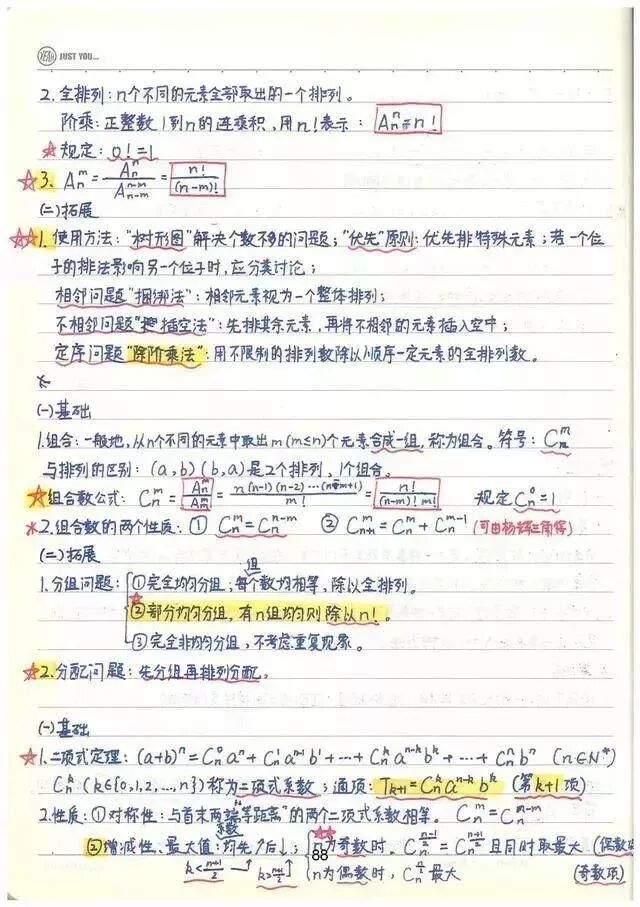 YEAH JUST YOU...
2. 全排列：n个不同的元素全部取出的一个排列。
阶乘：正整数1到n的连乘积，用n!表示： Aₙⁿ=n！
☆规定：0！=1
☆3. Aₙᵐ = Aₙⁿ/Aₙ₋ₘⁿ⁻ᵐ = n!/(n-m)!
(二)拓展
☆☆1. 使用方法："树形图"解决个数不多的问题；"优先"原则：优先排特殊元素；若一个位
子的排法影响另一个位子时，应分类讨论；
相邻问题"捆绑法"：相邻元素视为一个整体排列；
不相邻问题"插空法"：先排其余元素，再将不相邻的元素插入空中；
定序问题"除阶乘法"：用不限制的排列数除以顺序一定元素的全排列数。
(一)基础
1.组合：一般地，从n个不同的元素中取出m(m≤n)个元素合成一组，称为组合。符号：Cₙᵐ
与排列的区别：(a,b)(b,a)是2个排列，1个组合。
☆组合数公式：Cₙᵐ = Aₙᵐ/Aₘᵐ = n(n-1)(n-2)…(n-m+1)/m! = n!/(n-m)!m! 规定Cₙ⁰=1
*2.组合数的两个性质：① Cₙᵐ=Cₙⁿ⁻ᵐ ② Cₙ₊₁ᵐ=Cₙᵐ+Cₙᵐ⁻¹ (可由杨辉三角得)
(二)拓展
1.分组问题：①完全均匀分组，每组个数均相等，除以全排列。
②部分均匀分组，有n组均匀则除以n！。
③完全非均匀分组，不考虑重复现象。
☆2.分配问题：先分组再排列分配。
(一)基础
☆1.二项式定理：(a+b)ⁿ=Cₙ⁰aⁿ+Cₙ¹aⁿ⁻¹b¹+…+Cₙᵏaⁿ⁻ᵏbᵏ+…+Cₙⁿbⁿ (n∈N*)
Cₙᵏ(k∈{0,1,2,…,n})称为二项式系数；通项：Tₖ₊₁=Cₙᵏaⁿ⁻ᵏbᵏ (第k+1项)
2.性质：①对称性：与首末两端"等距离"的两个二项式系数相等。 Cₙᵐ=Cₙⁿ⁻ᵐ
②增减性、最大值：系数均先↑后↓；☆☆n为奇数时，Cₙ^((n-1)/2)=Cₙ^((n+1)/2)且同时取最大 (偶数项
k<(n+1)/2 k>(n+1)/2 n为偶数时，Cₙ^(n/2)最大 (奇数项)
88